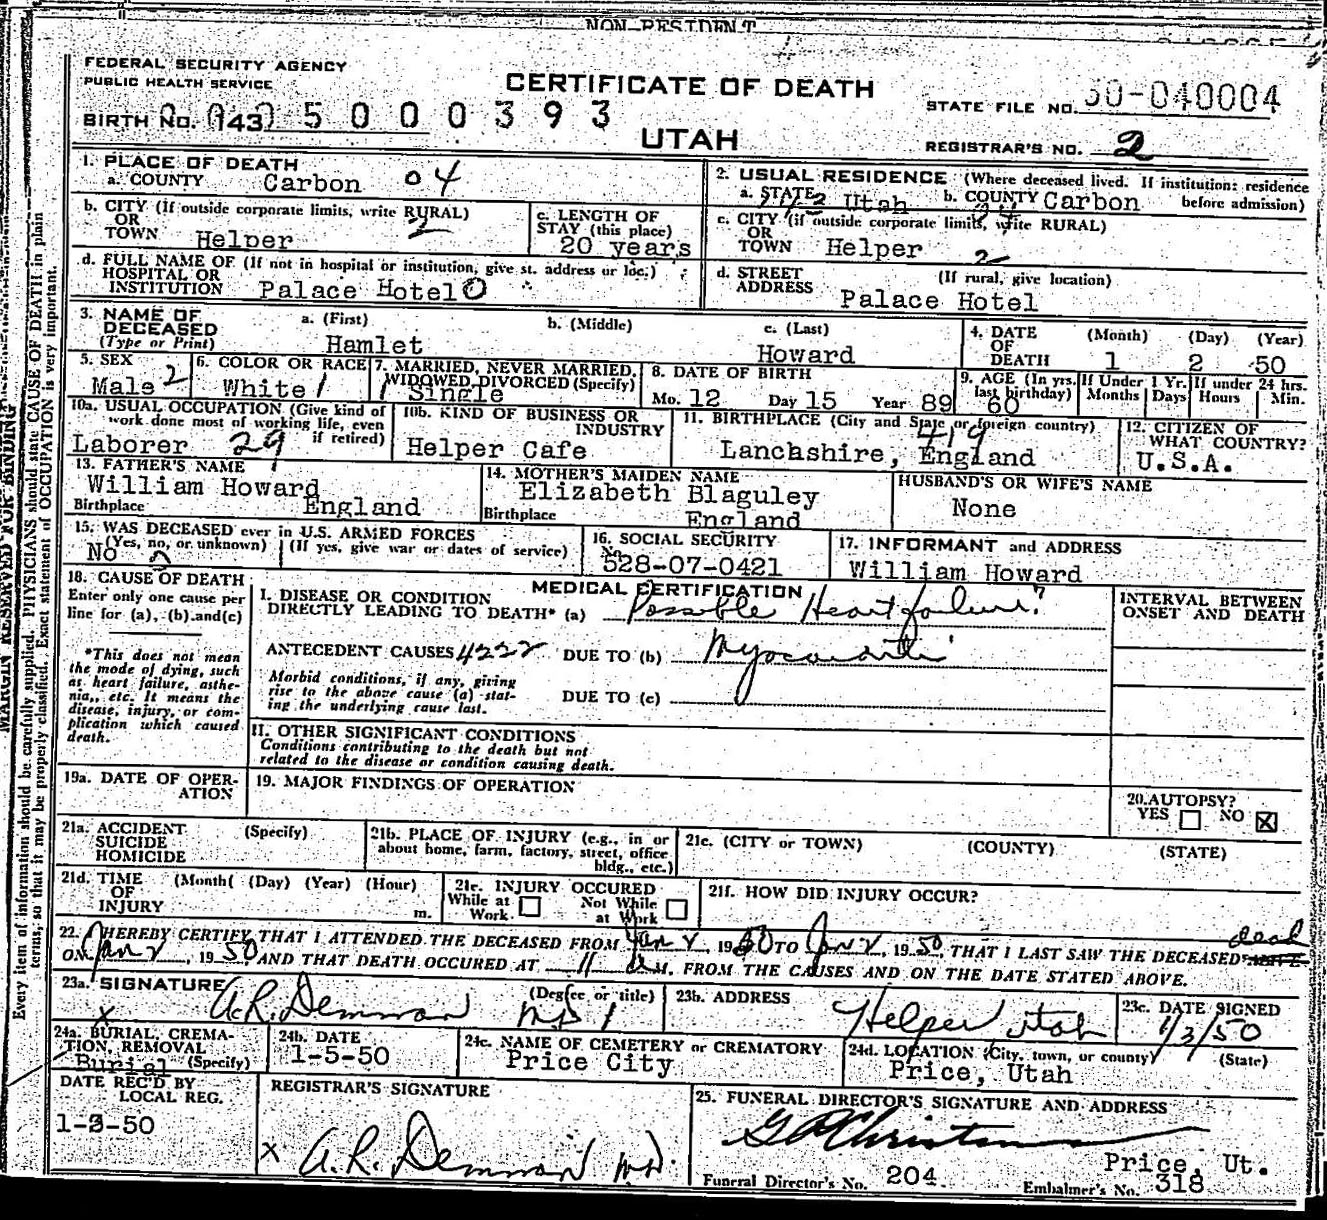 NON-RESIDENT
FEDERAL SECURITY AGENCY
PUBLIC HEALTH SERVICE
CERTIFICATE OF DEATH
UTAH
BIRTH No. 143 5 0 0 0 3 9 3
STATE FILE NO. 50-040004
REGISTRAR'S NO. 2
1. PLACE OF DEATH
a. COUNTY Carbon 04
2. USUAL RESIDENCE (Where deceased lived. If institution: residence before admission)
a. STATE Utah b. COUNTY Carbon
b. CITY (If outside corporate limits, write RURAL) 2
OR
TOWN Helper
c. LENGTH OF STAY (this place)
20 years
c. CITY (if outside corporate limits, write RURAL)
OR
TOWN Helper 2
d. FULL NAME OF (If not in hospital or institution, give st. address or loc.)
HOSPITAL OR
INSTITUTION Palace Hotel 0
d. STREET ADDRESS (If rural, give location)
Palace Hotel
3. NAME OF DECEASED
(Type or Print)
a. (First) b. (Middle) c. (Last)
Hamlet Howard
4. DATE OF DEATH (Month) (Day) (Year)
1 2 50
5. SEX
Male 2
6. COLOR OR RACE
White 1
7. MARRIED, NEVER MARRIED, WIDOWED, DIVORCED (Specify)
1 Single
8. DATE OF BIRTH
Mo. 12 Day 15 Year 89
9. AGE (In yrs. last birthday)
60
If Under 1 Yr. Months Days
If under 24 hrs. Hours Min.
10a. USUAL OCCUPATION (Give kind of work done most of working life, even if retired)
Laborer 29
10b. KIND OF BUSINESS OR INDUSTRY
Helper Cafe
11. BIRTHPLACE (City and State or foreign country)
419
Lancashire, England
12. CITIZEN OF WHAT COUNTRY?
U.S.A.
13. FATHER'S NAME
William Howard
Birthplace England
14. MOTHER'S MAIDEN NAME
Elizabeth Blaguley
Birthplace England
HUSBAND'S OR WIFE'S NAME
None
15. WAS DECEASED ever in U.S. ARMED FORCES
(Yes, no, or unknown) (If yes, give war or dates of service)
No
16. SOCIAL SECURITY No.
528-07-0421
17. INFORMANT and ADDRESS
William Howard
18. CAUSE OF DEATH
Enter only one cause per line for (a), (b) and (c)
*This does not mean the mode of dying, such as heart failure, asthenia, etc. It means the disease, injury, or complication which caused death.
MEDICAL CERTIFICATION
I. DISEASE OR CONDITION
DIRECTLY LEADING TO DEATH* (a) Possible Heart failure?
INTERVAL BETWEEN ONSET AND DEATH
ANTECEDENT CAUSES 4222 DUE TO (b)
Morbid conditions, if any, giving rise to the above cause (a) stating the underlying cause last.
DUE TO (c)
II. OTHER SIGNIFICANT CONDITIONS
Conditions contributing to the death but not related to the disease or condition causing death.
19a. DATE OF OPERATION
19. MAJOR FINDINGS OF OPERATION
20. AUTOPSY?
YES NO X
21a. ACCIDENT SUICIDE HOMICIDE (Specify)
21b. PLACE OF INJURY (e.g., in or about home, farm, factory, street, office bldg., etc.)
21c. (CITY or TOWN) (COUNTY) (STATE)
21d. TIME OF INJURY (Month) (Day) (Year) (Hour) m.
21e. INJURY OCCURED
While at Work. Not While at Work
21f. HOW DID INJURY OCCUR?
22. I HEREBY CERTIFY THAT I ATTENDED THE DECEASED FROM Jan 2, 1950 TO Jan 2, 1950, THAT I LAST SAW THE DECEASED dead
ON Jan 2, 1950 AND THAT DEATH OCCURED AT 11 a M. FROM THE CAUSES AND ON THE DATE STATED ABOVE.
23a. SIGNATURE (Degree or title)
A.R. Demman MD
23b. ADDRESS
Helper Utah
23c. DATE SIGNED
1/3/50
24a. BURIAL, CREMATION, REMOVAL
Burial (Specify)
24b. DATE
1-5-50
24c. NAME OF CEMETERY or CREMATORY
Price City
24d. LOCATION (City, town, or county) (State)
Price, Utah
DATE REC'D BY LOCAL REG.
1-3-50
REGISTRAR'S SIGNATURE
x A.R. Demman M.D.
25. FUNERAL DIRECTOR'S SIGNATURE AND ADDRESS
Price, Ut.
Funeral Director's No. 204 Embalmer's No. 318
MARGIN RESERVED FOR BINDING
Every item of information should be carefully supplied. PHYSICIANS should state CAUSE OF DEATH in plain
terms, so that it may be properly classified. Exact statement of OCCUPATION is very important.